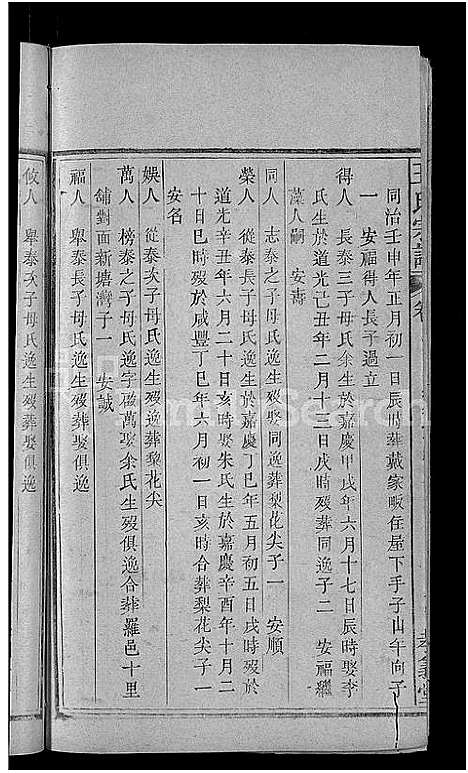 同治壬申年正月初一日辰時葬戴家畈住屋下手子山午向子
一　安福得人長子過立
得人　長泰三子母氏余生於嘉慶甲戌年六月十七日辰時娶李
氏生於道光己丑年二月十四日戌時歿葬同逸子二　安福繼
藻人嗣　安壽
同人　志泰之子母氏逸生歿娶同逸葬梨花尖子一　安順
榮人　從泰長子母氏逸生於嘉慶丁巳年五月初五日戌時歿於
道光辛丑年六月二十日亥時娶朱氏生於嘉慶辛酉年十月二
十日巳時歿於咸豐丁巳年六月初一日亥時合葬梨花尖子一
安名
娛人　從泰次子母氏逸生歿葬梨花尖
萬人　榜泰之子母氏逸字啟萬娶余氏生歿俱逸合葬羅邑十里
舖對面新塘灣子一　安誠
福人　舉泰長子母氏逸生歿葬娶俱逸
攸人　舉泰次子母氏逸生歿葬娶俱逸
王氏宗譜
卷
孝義堂